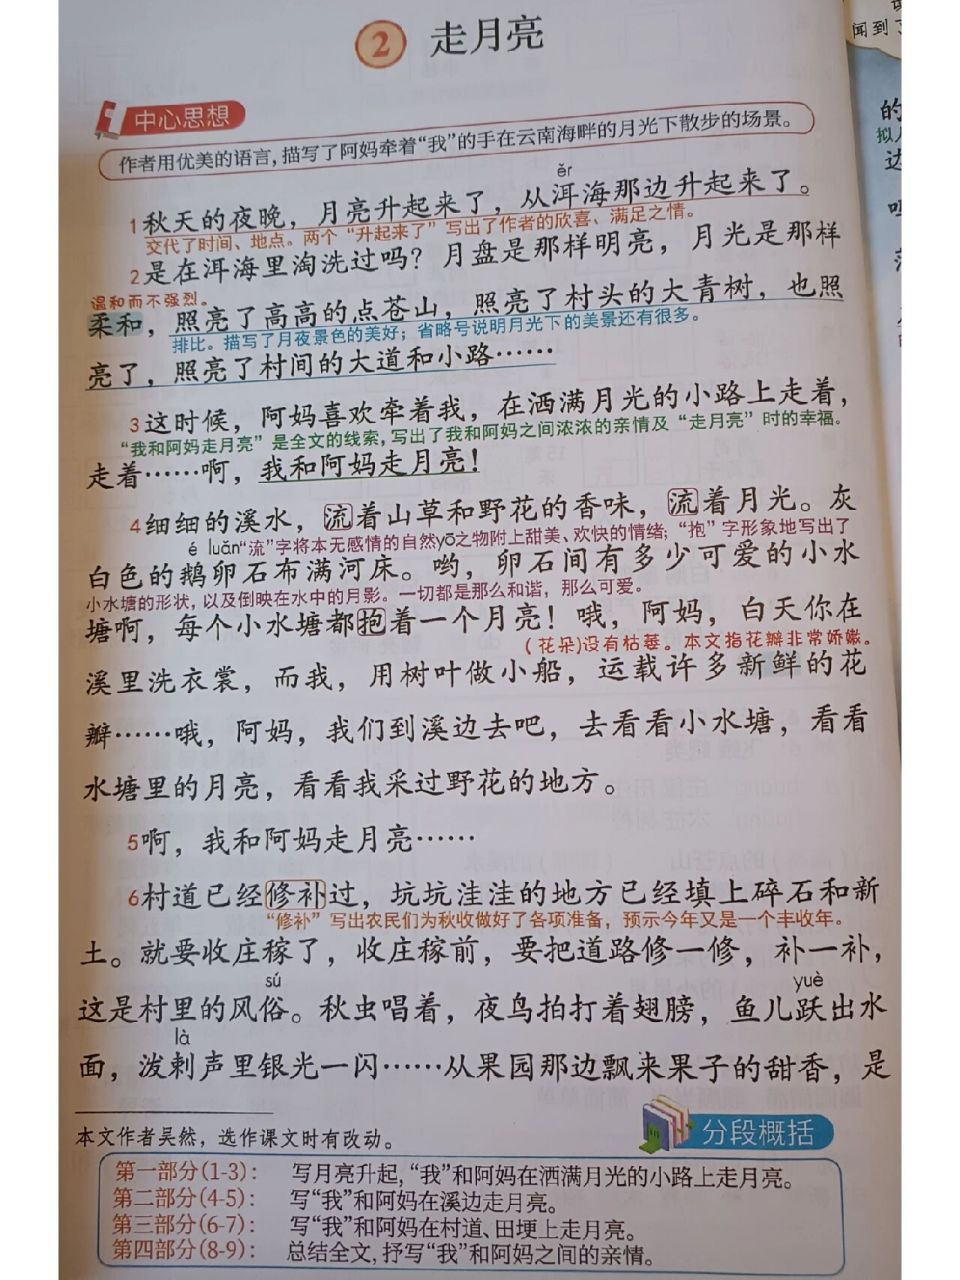 2 走月亮
中心思想
作者用优美的语言,描写了阿妈牵着“我”的手在云南海畔的月光下散步的场景。
ěr
1秋天的夜晚，月亮升起来了，从洱海那边升起来了。
交代了时间、地点。两个“升起来了”写出了作者的欣喜、满足之情。
2是在洱海里淘洗过吗？月盘是那样明亮，月光是那样
温和而不强烈。
柔和，照亮了高高的点苍山，照亮了村头的大青树，也照
排比。描写了月夜景色的美好；省略号说明月光下的美景还有很多。
亮了，照亮了村间的大道和小路……
3这时候，阿妈喜欢牵着我，在洒满月光的小路上走着，
“我和阿妈走月亮”是全文的线索,写出了我和阿妈之间浓浓的亲情及“走月亮”时的幸福。
走着……啊，我和阿妈走月亮！
4细细的溪水，流着山草和野花的香味，流着月光。灰
é luǎn“流”字将本无感情的自然yō之物附上甜美、欢快的情绪；“抱”字形象地写出了
白色的鹅卵石布满河床。哟，卵石间有多少可爱的小水
小水塘的形状,以及倒映在水中的月影。一切都是那么和谐，那么可爱。
塘啊，每个小水塘都抱着一个月亮！哦，阿妈，白天你在
(花朵)没有枯萎。本文指花瓣非常娇嫩。
溪里洗衣裳，而我，用树叶做小船，运载许多新鲜的花
瓣……哦，阿妈，我们到溪边去吧，去看看小水塘，看看
水塘里的月亮，看看我采过野花的地方。
5啊，我和阿妈走月亮……
6村道已经修补过，坑坑洼洼的地方已经填上碎石和新
“修补”写出农民们为秋收做好了各项准备，预示今年又是一个丰收年。
土。就要收庄稼了，收庄稼前，要把道路修一修，补一补，
sú yuè
这是村里的风俗。秋虫唱着，夜鸟拍打着翅膀，鱼儿跃出水
là
面，泼剌声里银光一闪……从果园那边飘来果子的甜香，是
本文作者吴然，选作课文时有改动。
分段概括
第一部分(1-3)： 写月亮升起,“我”和阿妈在洒满月光的小路上走月亮。
第二部分(4-5)： 写“我”和阿妈在溪边走月亮。
第三部分(6-7)： 写“我”和阿妈在村道、田埂上走月亮。
第四部分(8-9)： 总结全文,抒写“我”和阿妈之间的亲情。
闻到
的